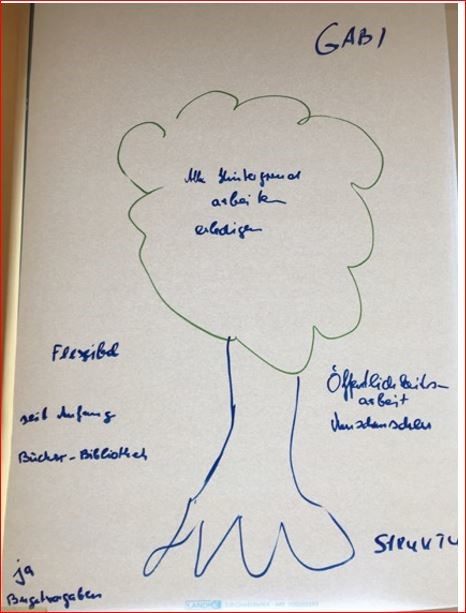 GABI
Alle Hintergrund
arbeiten
erledigen
Flexibel
Öffentlichkeits-
arbeit
seit Anfang
Bücher-Bibliothek
STRUKTU
ja